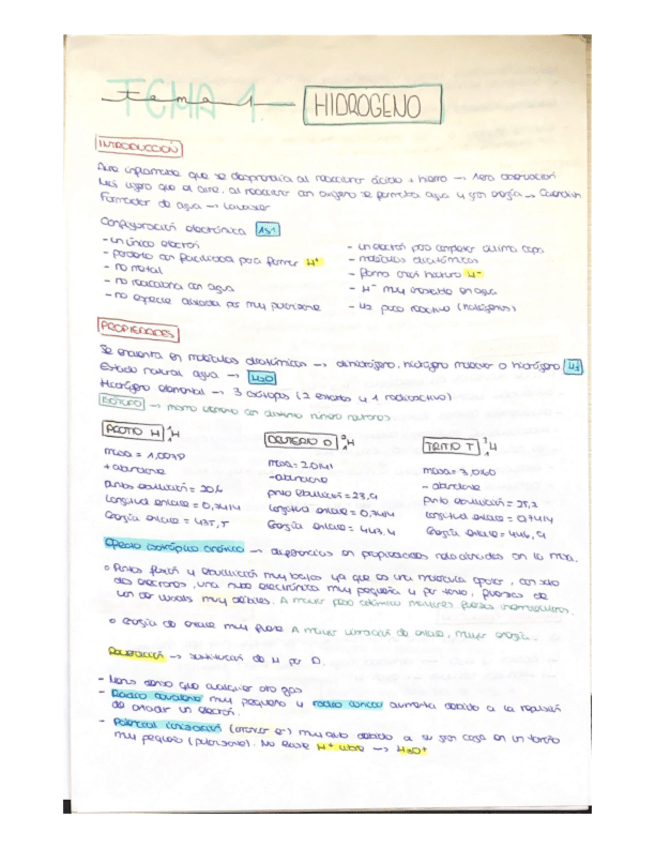 TEMA 1 — HIDROGENO
INTRODUCCIÓN
Aire inflamable que se desprendía al reaccionar ácido + hierro → 1era observación
Más ligero que el aire, al reaccionar con oxígeno se formaba agua y gran energía → Cavendish
Formador de agua → Lavoisier
Configuración electrónica 1s1
- un único electrón
- perderlo con facilidad para formar H+
- no metal
- no reacciona con agua
- no especie aislada por muy polarizante
- un electrón para completar última capa
- moléculas diatómicas
- forma anión hidruro H-
- H- muy inestable en agua
- H2 poco reactivo (halógenos)
PROPIEDADES
Se encuentra en moléculas diatómicas → dihidrógeno, hidrógeno molecular o hidrógeno H2
Estado natural agua → H2O
Hidrógeno elemental → 3 isótopos (2 estables y 1 radioactivo)
ISÓTOPO → mismo elemento con distinto número neutrones.
PROTIO H 1 1 H
masa = 1,0078
+ abundante
punto ebullición = 20,6
Longitud enlace = 0,7414
Energía enlace = 435,5
DEUTERIO D 2 1 H
masa = 2,0141
- abundante
punto ebullición = 23,9
Longitud enlace = 0,7414
Energía enlace = 443,4
TRITIO T 3 1 H
masa = 3,0160
- abundante
punto ebullición = 25,2
Longitud enlace = 0,7414
Energía enlace = 446,9
Efecto isotópico cinético → diferencias en propiedades relacionadas con la masa.
○ Puntos fusión y ebullición muy bajos ya que es una molécula apolar, con solo
dos electrones, una nube electrónica muy pequeña y por tanto, fuerzas de
van der Waals muy débiles. A mayor peso atómico mayores fuerzas intermoleculares.
○ Energía de enlace muy fuerte. A mayor vibración de enlace, mayor energía.
Deuteración → sustitución de H por D.
- Menos denso que cualquier otro gas
- Radio covalente muy pequeño y radio iónico aumenta debido a la repulsión
de añadir un electrón.
- Potencial ionización (arrancar e-) muy alto debido a su gran carga en un tamaño
muy pequeño (polarizante). No existe H+ libre → H3O+